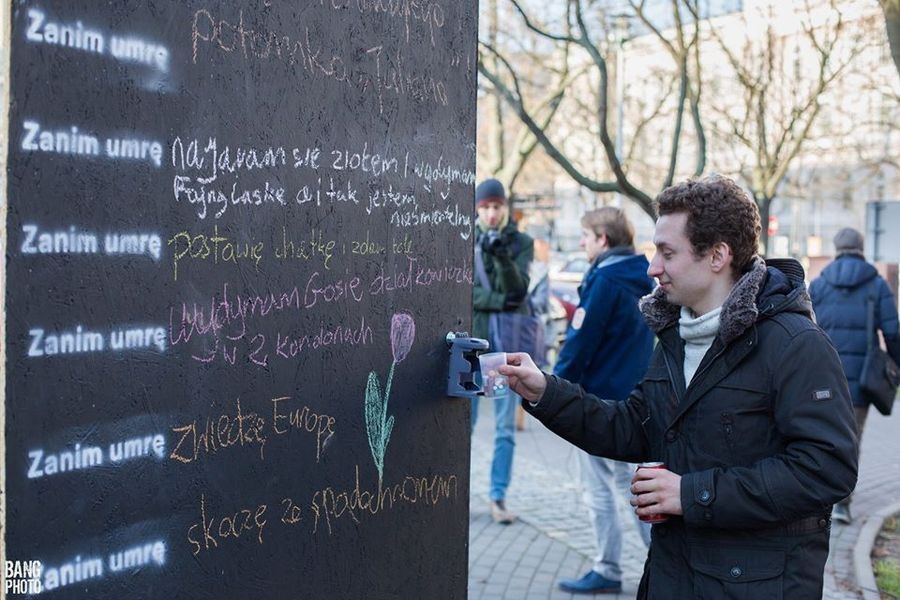 Zanim umrę
potomka "Juliana"
Zanim umrę najaram się ziołem i wydymam
Fajną laskę a i tak jestem
nieśmiertelny
Zanim umrę postawię chatkę i
Zanim umrę wydymam Gosię działkowiczkę
w 2 kondonach
Zanim umrę zwiedzę Europę
Zanim umrę skoczę ze spadochronem
BANG
PHOTO